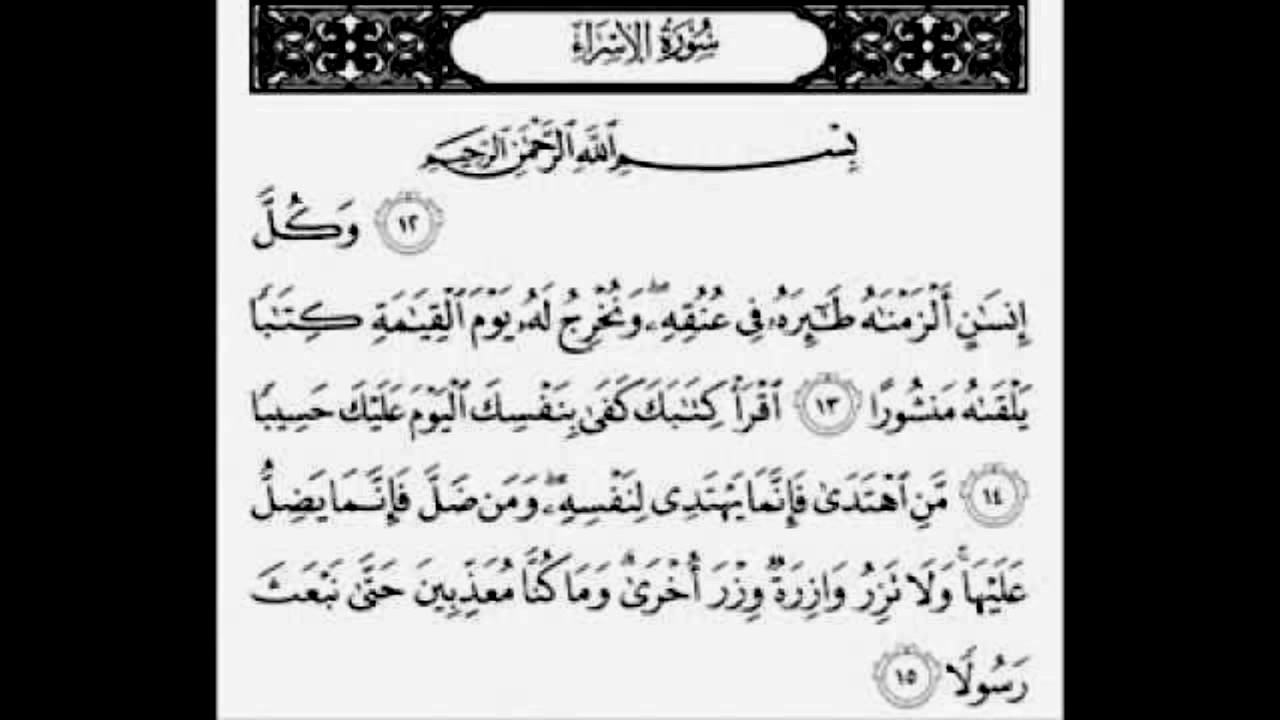 سُورَةُ الإِسْرَاءِ
بِسْمِ ٱللَّهِ ٱلرَّحْمَٰنِ ٱلرَّحِيمِ
١٢ وَكُلَّ
إِنسَٰنٍ أَلْزَمْنَٰهُ طَٰٓئِرَهُۥ فِى عُنُقِهِۦ ۖ وَنُخْرِجُ لَهُۥ يَوْمَ ٱلْقِيَٰمَةِ كِتَٰبًا
يَلْقَىٰهُ مَنشُورًا ١٣ ٱقْرَأْ كِتَٰبَكَ كَفَىٰ بِنَفْسِكَ ٱلْيَوْمَ عَلَيْكَ حَسِيبًا
١٤ مَّنِ ٱهْتَدَىٰ فَإِنَّمَا يَهْتَدِى لِنَفْسِهِۦ ۖ وَمَن ضَلَّ فَإِنَّمَا يَضِلُّ
عَلَيْهَا ۚ وَلَا تَزِرُ وَازِرَةٌ وِزْرَ أُخْرَىٰ ۗ وَمَا كُنَّا مُعَذِّبِينَ حَتَّىٰ نَبْعَثَ
رَسُولًا ١٥